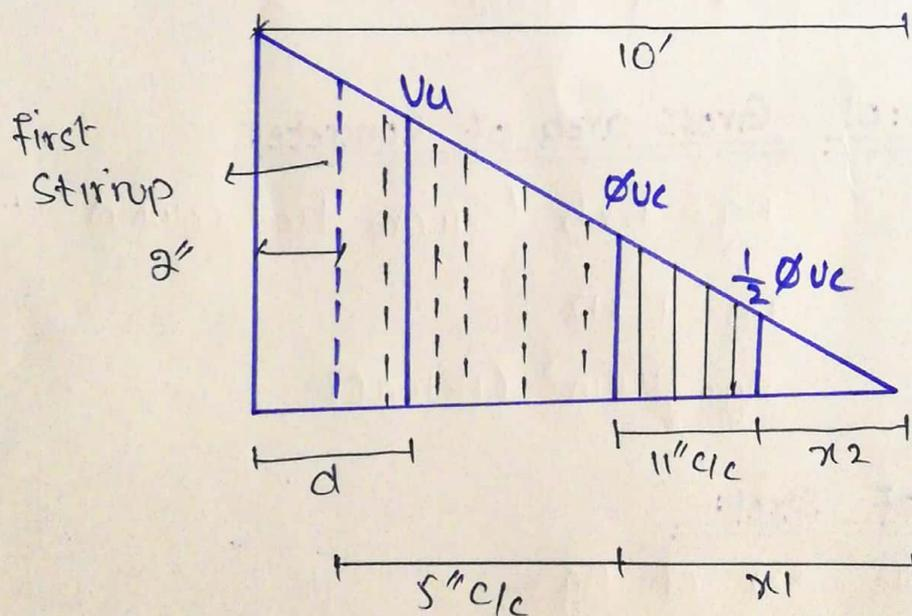 10'
Vu
First
Stirrup
2"
ØVc
1/2 ØVc
d
11" c/c
x2
5" c/c
x1